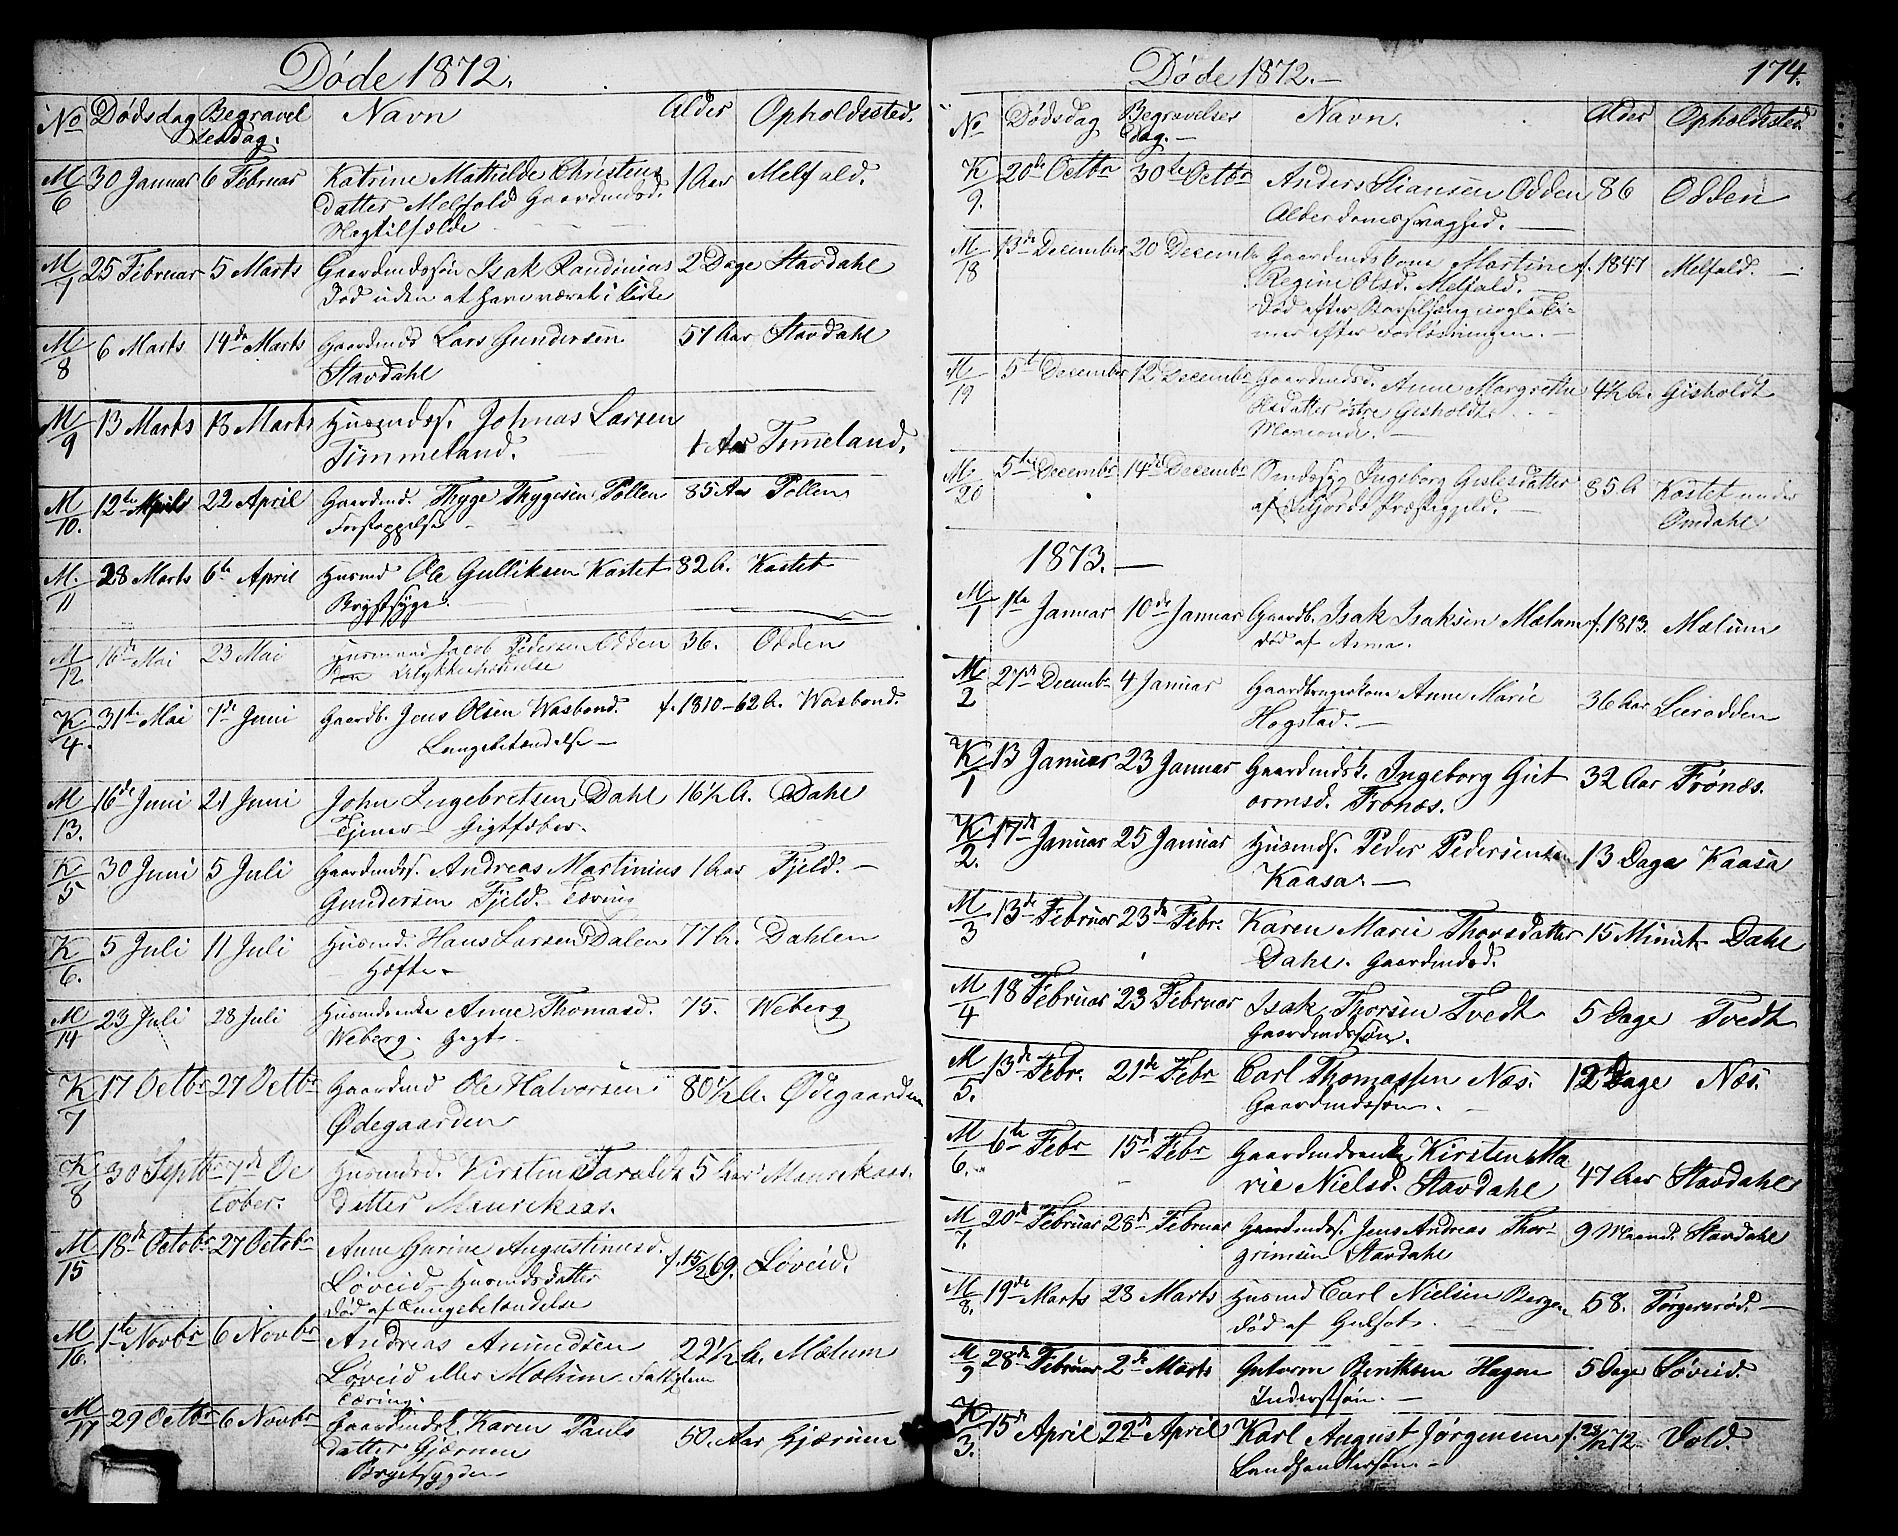 Døde 1872.
No Dødsdag Begravelsesdag. Navn Alder Opholdssted.
M/6 30 Januar 6 Februar Katrine Mathilde Christens 1 Aar Melfald.
datter Melfald Gaardmdsd.
M/7 25 Februar 5 Marts Gaardmdssøn Isak Randinius 2 Dage Stavdahl
Død uden at have været i Kirke
M/8 6 Marts 14de Marts Gaardmd Lars Gundersen 57 Aar Stavdahl
Stavdahl
M/9 13 Marts 18 Marts Husmdss. Johnas Larsen
Timmeland. 1 Aar Timeland.
M/10. 12te April 22 April Gaardmd. Thyge Thygesen Tollen 85 Aar Tollen
Forstoppelse
M./11 28 Marts 6te April Husmd Ole Gulliksen Kastet 82 A. Kastet
Brystsyge.
M/12 16de Mai 23 Mai Husmand Jacob Pedersen Odden 36. Odden
Ulykkehændelse
K/4. 31te Mai 7de Juni Gaardb. Jens Olsen Wasbond. f. 1810 – 62 A. Wasbond.
Lungebetændelse –
M/13. 16de Juni 21 Juni John Ingebretsen Dahl 16½ A. Dahl
Tjener Gigtfeber.
K/5 30 Juni 5 Juli Gaardmdss. Andreas Martinius 1 Aar Fjeld. –
Gundersen Fjeld. Tæring
K/6. 5 Juli 11 Juli Husmd. Hans Larsen Dalen 77 A. Dahlen
Hæfte –
M/14 23 Juli 28 Juli Husmdenke Anne Thomasd. 75. Weberg
Weberg. Gigt –
K/7 17 Octbr 27 Octbr Gaardmd Ole Halvorsen 80½ A. Ødegaarden
Ødegaarden
K/8 30 Septbr 7de Oc Husmdsd. Kirstine Taralds 5 Aar Maurekaas.
tober. datter Maurekaas.
M/15 18de Octobr 27 Octobr Anne Gurine Augustinusd. f. 15/2 69. Løveid.
Løveid – Husmdsdatter
død af Lungebetændelse
M/16. 1te Novbr 6 Novbr Andreas Amundsen 22½ A. Mælum
Løveid eller Mælum. Fattiglem
Tæring.
M/17 29 Octbr 6 Novbr Gaardmdsk. Karen Pauls 50. Aar Gjærum
datter Gjærum
Brystsygdom
Døde 1872. – 174.
No Dødsdag Begravelses dag. – Navn. Alder Opholdssted
K/9. 20de Octbr 30te Octbr Anders Stiansen Odden 86 Odden
Alderdomssvaghed. –
M/18 13de December 20 Decemb. Gaardmdskone Martine f. 1847 Melfald. –
Regine Olsd. Melfald. –
Død efter Barselseng nogle Ti-
mer efter Forløsningen. –
M/19 5te December 12 Decembr Gaardmdsd. Anne Margrethe 4½ A. Gisholdt
Olsdatter østre Gisholdt.
M/20 5te Decembr 14de Decembr Sindssyg Ingeborg Gulesdatter 85 A Kastet under
af Siljords Præstegjeld. – Omdahl
1873. –
M/1 1te Januar 10de Januar Gaardb. Isak Isaksen Mælum f. 1813. Mælum
død af Asma. –
M/2 27de Decembr 4 Januar Gaardbrugerkone Anne Marie 36 Aar Lierodden
Hogstad. –
K/1 13 Januar 23 Januar Gaardmdsk. Ingeborg Gut 32 Aar Frönæs.
ormsd. Frönæs.
K/2. 17de Januar 25 Januar Husmdss. Peder Pedersen 13 Dage Kaasa
Kaasa. –
M/3 13de Februar 23de Febr. Karen Marie Thorsdatter 15 Minut – Dahl
Dahl. Gaardmdsd.
M/4 18 Februar 23 Februar Isak Thorsen Tvedt 5 Dage Tvedt
Gaardmdssøn.
M/5. 13de Febr. 21de Febr Carl Thomassen Næs. 12 Dage Næs.
Gaardmdssøn. –
M/6. 6te Febr 15de Febr Gaardmdsenke Kirsten Ma
rie Nielsd. Stavdahl 47 Aar Stavdahl
M/7. 20de Februar 28de Februar Gaardmdss. Jens Andreas Thor- 9 Maand. Stavdahl
grimsen Stavdahl
M/8. 19de Marts 28 Marts Husmd Carl Nielsen Bergen 58. Torgersrød. –
død af Gulsot. –
M/9 28de Februar 2de Marts Gutorm Benthsen Hagen 5 Dage Løveid.
Inderstsøn. –
K/3. 15de April 22de April Karl August Jørgensen f. 23/12 72 – Vold.
Landhandlersøn. –